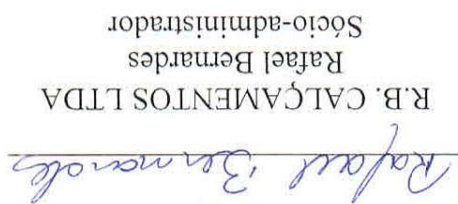 Rafael Bernardes
R.B. CALÇAMENTOS LTDA
Rafael Bernardes
Sócio-administrador